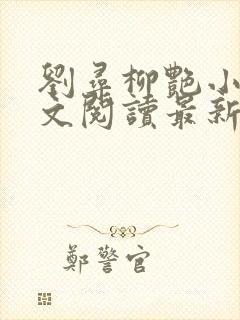 劉尋柳艷小
文閱讀最新
鄭警官